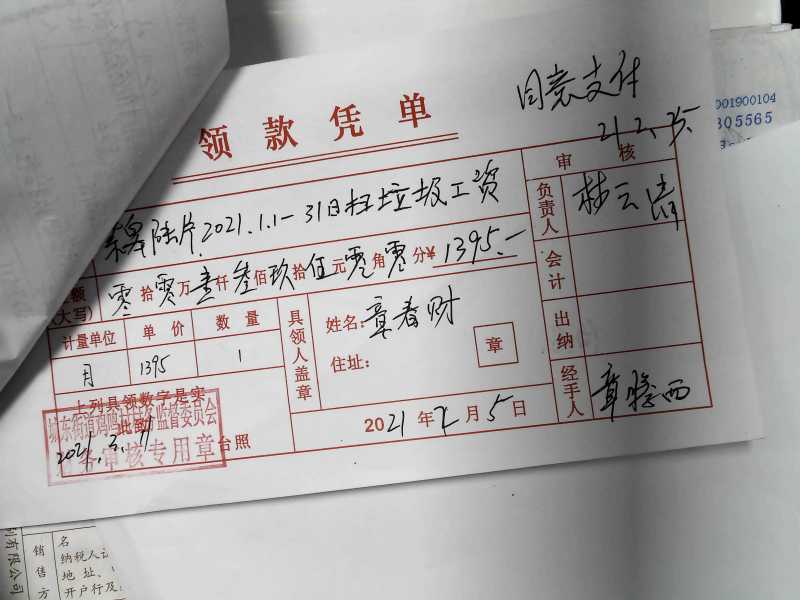 同意支付
21.2.25.
001900104
305565
领款凭单
审核
2021.1.1-31日扫垃圾工资
负责人
林云清
额(大写)
零拾零万壹仟叁佰玖拾伍元零角零分¥1395.-
会计
计量单位 单价 数量
月 1395 1
具领人盖章
姓名:章春财
住址:
章
出纳
上列具领数字是实
此致
台照
2021年2月5日
经手人
城东街道 监督委员会
2021.3.11
财务审核专用章
列有限公司
销售方
名
纳税人
地址、
开户行及